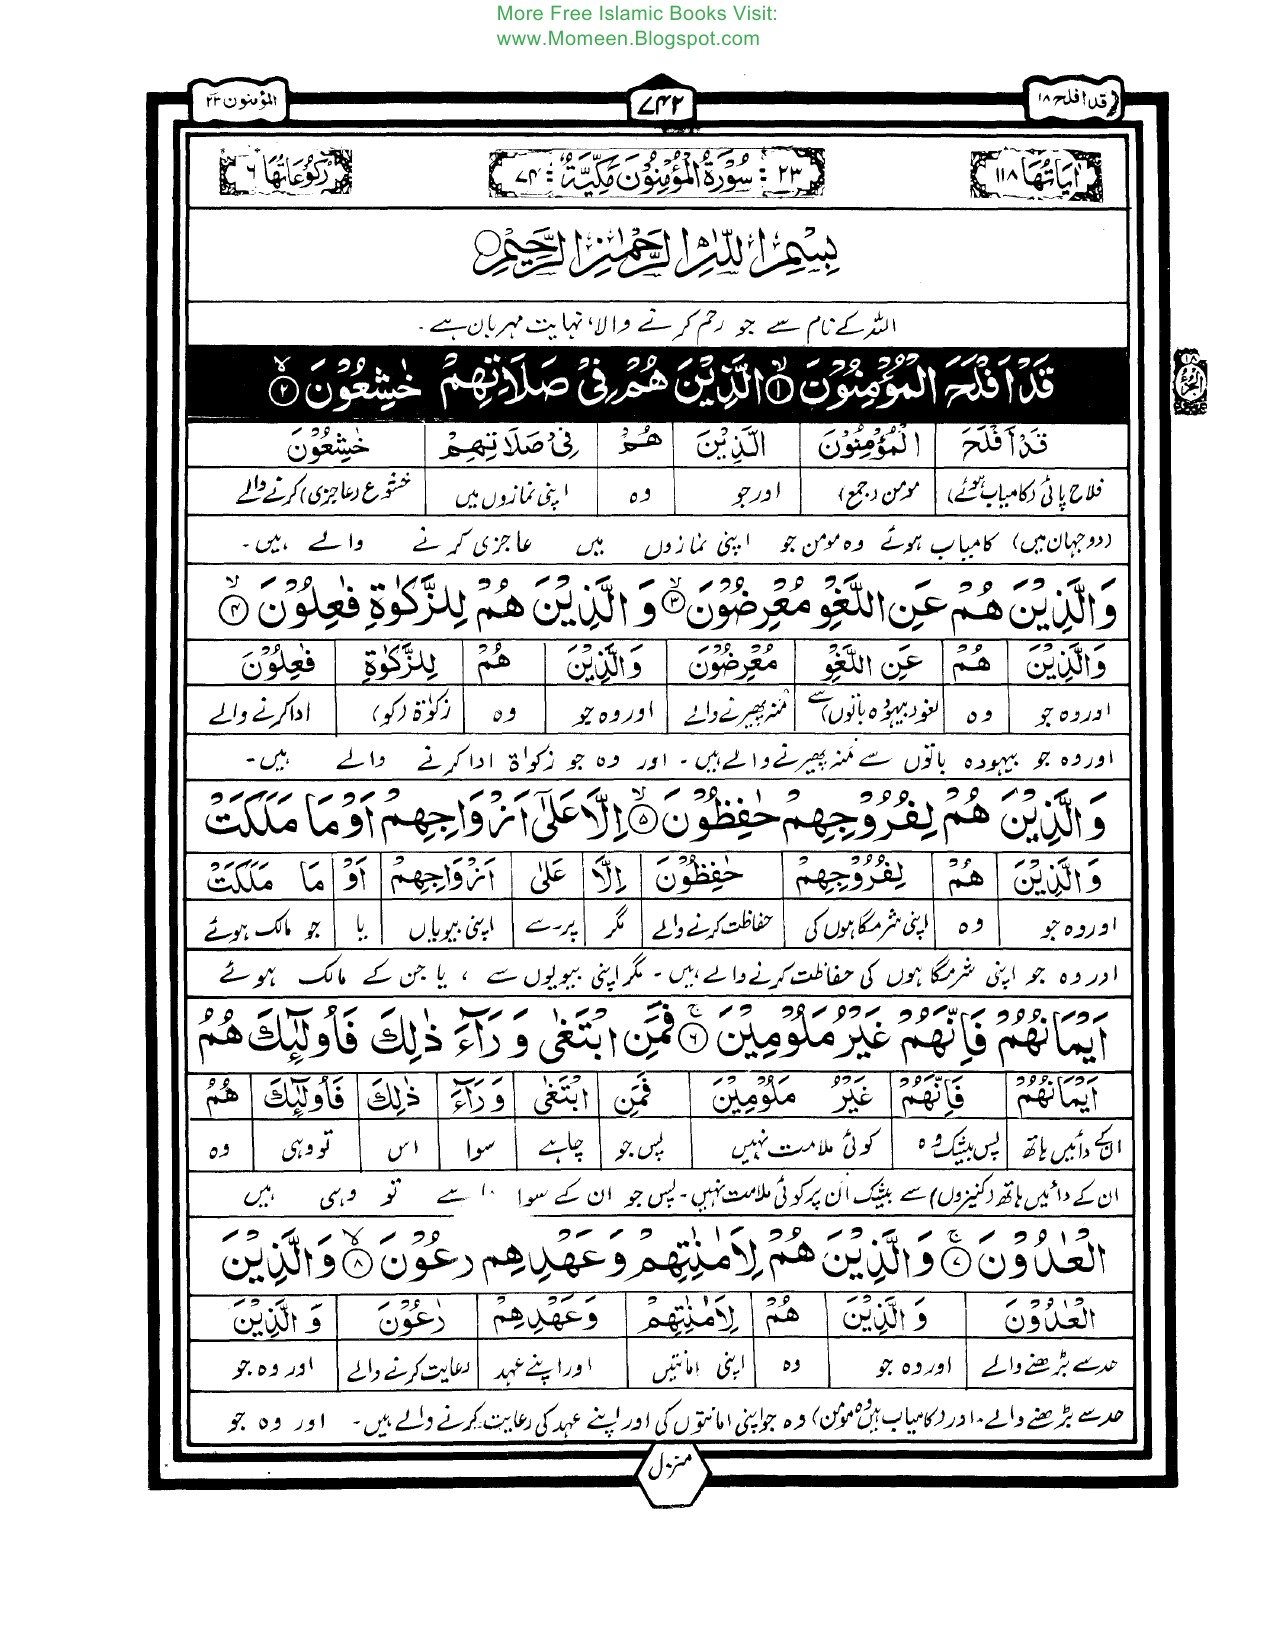 More Free Islamic Books Visit:
www.Momeen.Blogspot.com
قد افلح ۱۸
۷۴۲
المؤمنون ۲۳
اٰیَاتُهَا ۱۱۸
۲۳ : سُوْرَةُ الْمُؤْمِنُوْنَ مَكِّيَّةٌ : ۷۴
رُكُوْعَاتُهَا ۶
بِسْمِ اللّٰهِ الرَّحْمٰنِ الرَّحِيْمِ
اللہ کے نام سے جو رحم کرنے والا، نہایت مہربان ہے۔
قَدْ اَفْلَحَ الْمُؤْمِنُوْنَ ۱ الَّذِيْنَ هُمْ فِيْ صَلَاتِهِمْ خٰشِعُوْنَ ۲
الجزء ۱۸
قَدْ اَفْلَحَ الْمُؤْمِنُوْنَ الَّذِيْنَ هُمْ فِيْ صَلَاتِهِمْ خٰشِعُوْنَ
فلاح پائی (کامیاب ہوئے) مومن (جمع) اور جو وہ اپنی نمازوں میں خشوع (عاجزی) کرنے والے
(دو جہان میں) کامیاب ہوئے وہ مومن جو اپنی نمازوں میں عاجزی کرنے والے ہیں۔
وَالَّذِيْنَ هُمْ عَنِ اللَّغْوِ مُعْرِضُوْنَ ۳ وَالَّذِيْنَ هُمْ لِلزَّكٰوةِ فٰعِلُوْنَ ۴
وَالَّذِيْنَ هُمْ عَنِ اللَّغْوِ مُعْرِضُوْنَ وَالَّذِيْنَ هُمْ لِلزَّكٰوةِ فٰعِلُوْنَ
اور وہ جو وہ لغو (بیہودہ باتوں) سے منہ پھیرنے والے اور وہ جو وہ زکوٰۃ (کو) ادا کرنے والے
اور وہ جو بیہودہ باتوں سے منہ پھیرنے والے ہیں۔ اور وہ جو زکوٰۃ ادا کرنے والے ہیں۔
وَالَّذِيْنَ هُمْ لِفُرُوْجِهِمْ حٰفِظُوْنَ ۵ اِلَّا عَلٰٓى اَزْوَاجِهِمْ اَوْ مَا مَلَكَتْ
وَالَّذِيْنَ هُمْ لِفُرُوْجِهِمْ حٰفِظُوْنَ اِلَّا عَلٰى اَزْوَاجِهِمْ اَوْ مَا مَلَكَتْ
اور وہ جو وہ اپنی شرمگاہوں کی حفاظت کرنے والے مگر پر۔سے اپنی بیویاں یا جو مالک ہوئے
اور وہ جو اپنی شرمگاہوں کی حفاظت کرنے والے ہیں۔ مگر اپنی بیویوں سے ، یا جن کے مالک ہوئے
اَيْمَانُهُمْ فَاِنَّهُمْ غَيْرُ مَلُوْمِيْنَ ۶ فَمَنِ ابْتَغٰى وَرَآءَ ذٰلِكَ فَاُولٰٓئِكَ هُمُ
اَيْمَانُهُمْ فَاِنَّهُمْ غَيْرُ مَلُوْمِيْنَ فَمَنِ ابْتَغٰى وَرَآءَ ذٰلِكَ فَاُولٰٓئِكَ هُمُ
ان کے دائیں ہاتھ پس بیشک وہ کوئی ملامت نہیں پس جو چاہے سوا اس تو وہی وہ
ان کے دائیں ہاتھ (کنیزوں) سے بیشک ان پر کوئی ملامت نہیں۔ پس جو ان کے سوا سے تو وہی ہیں
الْعٰدُوْنَ ۷ وَالَّذِيْنَ هُمْ لِاَمٰنٰتِهِمْ وَعَهْدِهِمْ رٰعُوْنَ ۸ وَالَّذِيْنَ
الْعٰدُوْنَ وَالَّذِيْنَ هُمْ لِاَمٰنٰتِهِمْ وَعَهْدِهِمْ رٰعُوْنَ وَالَّذِيْنَ
حد سے بڑھنے والے اور وہ جو وہ اپنی امانتیں اور اپنے عہد رعایت کرنے والے اور وہ جو
حد سے بڑھنے والے۔ اور (کامیاب ہیں وہ مومن) وہ جو اپنی امانتوں کی اور اپنے عہد کی رعایت کرنے والے ہیں۔ اور وہ جو
منزل